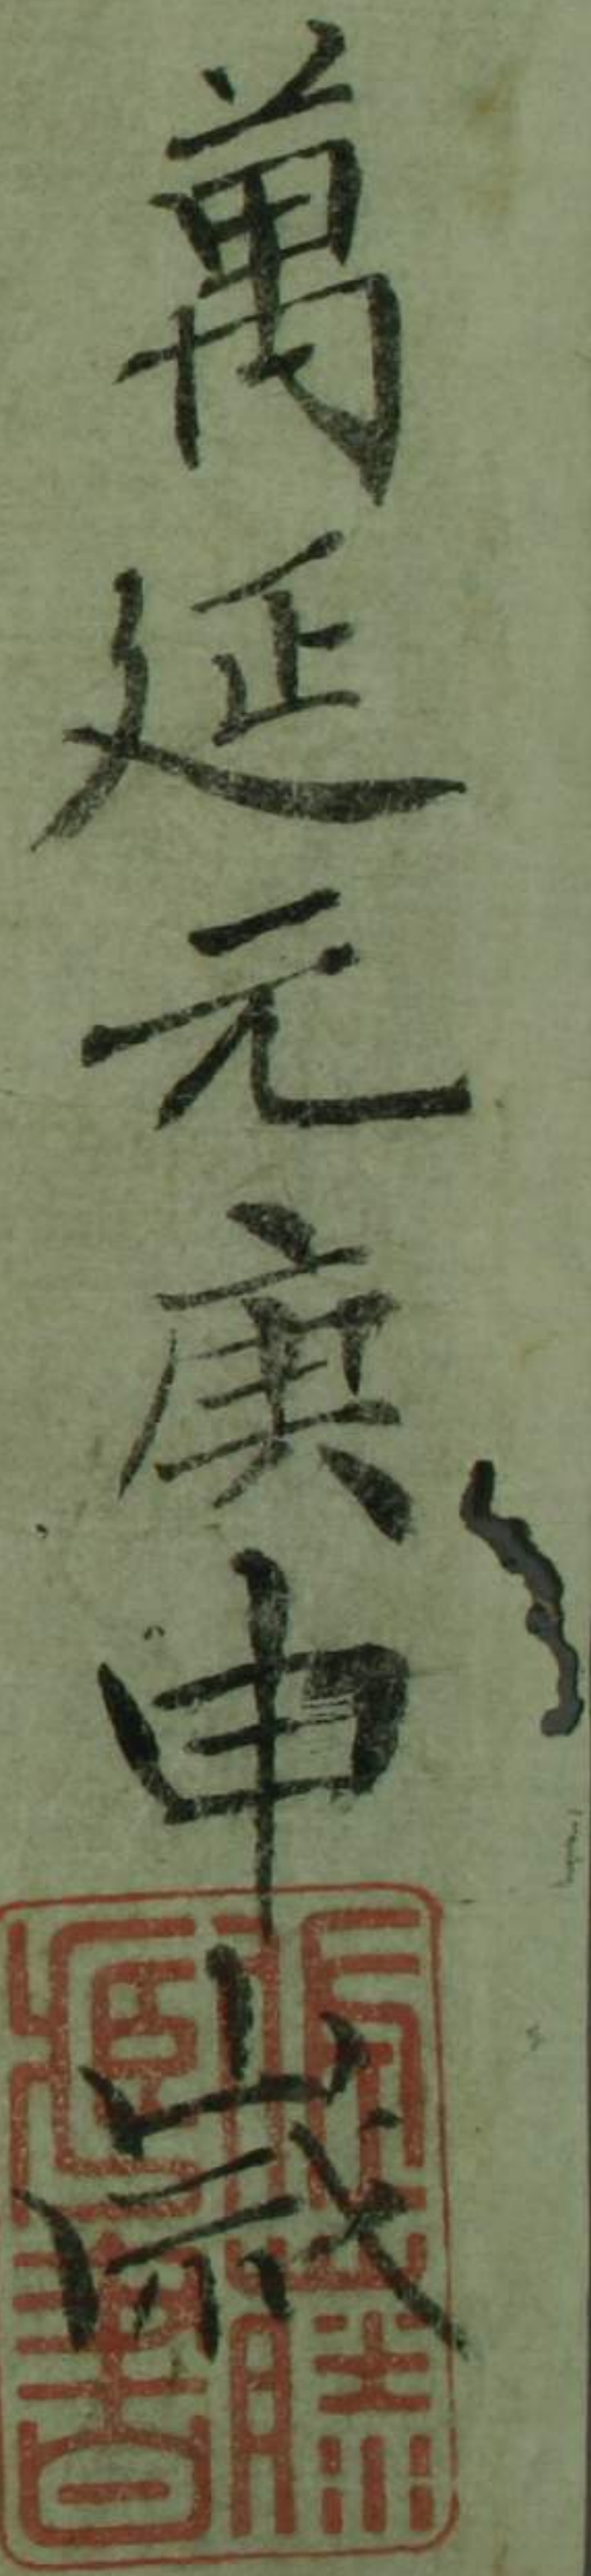 萬延元庚申歳